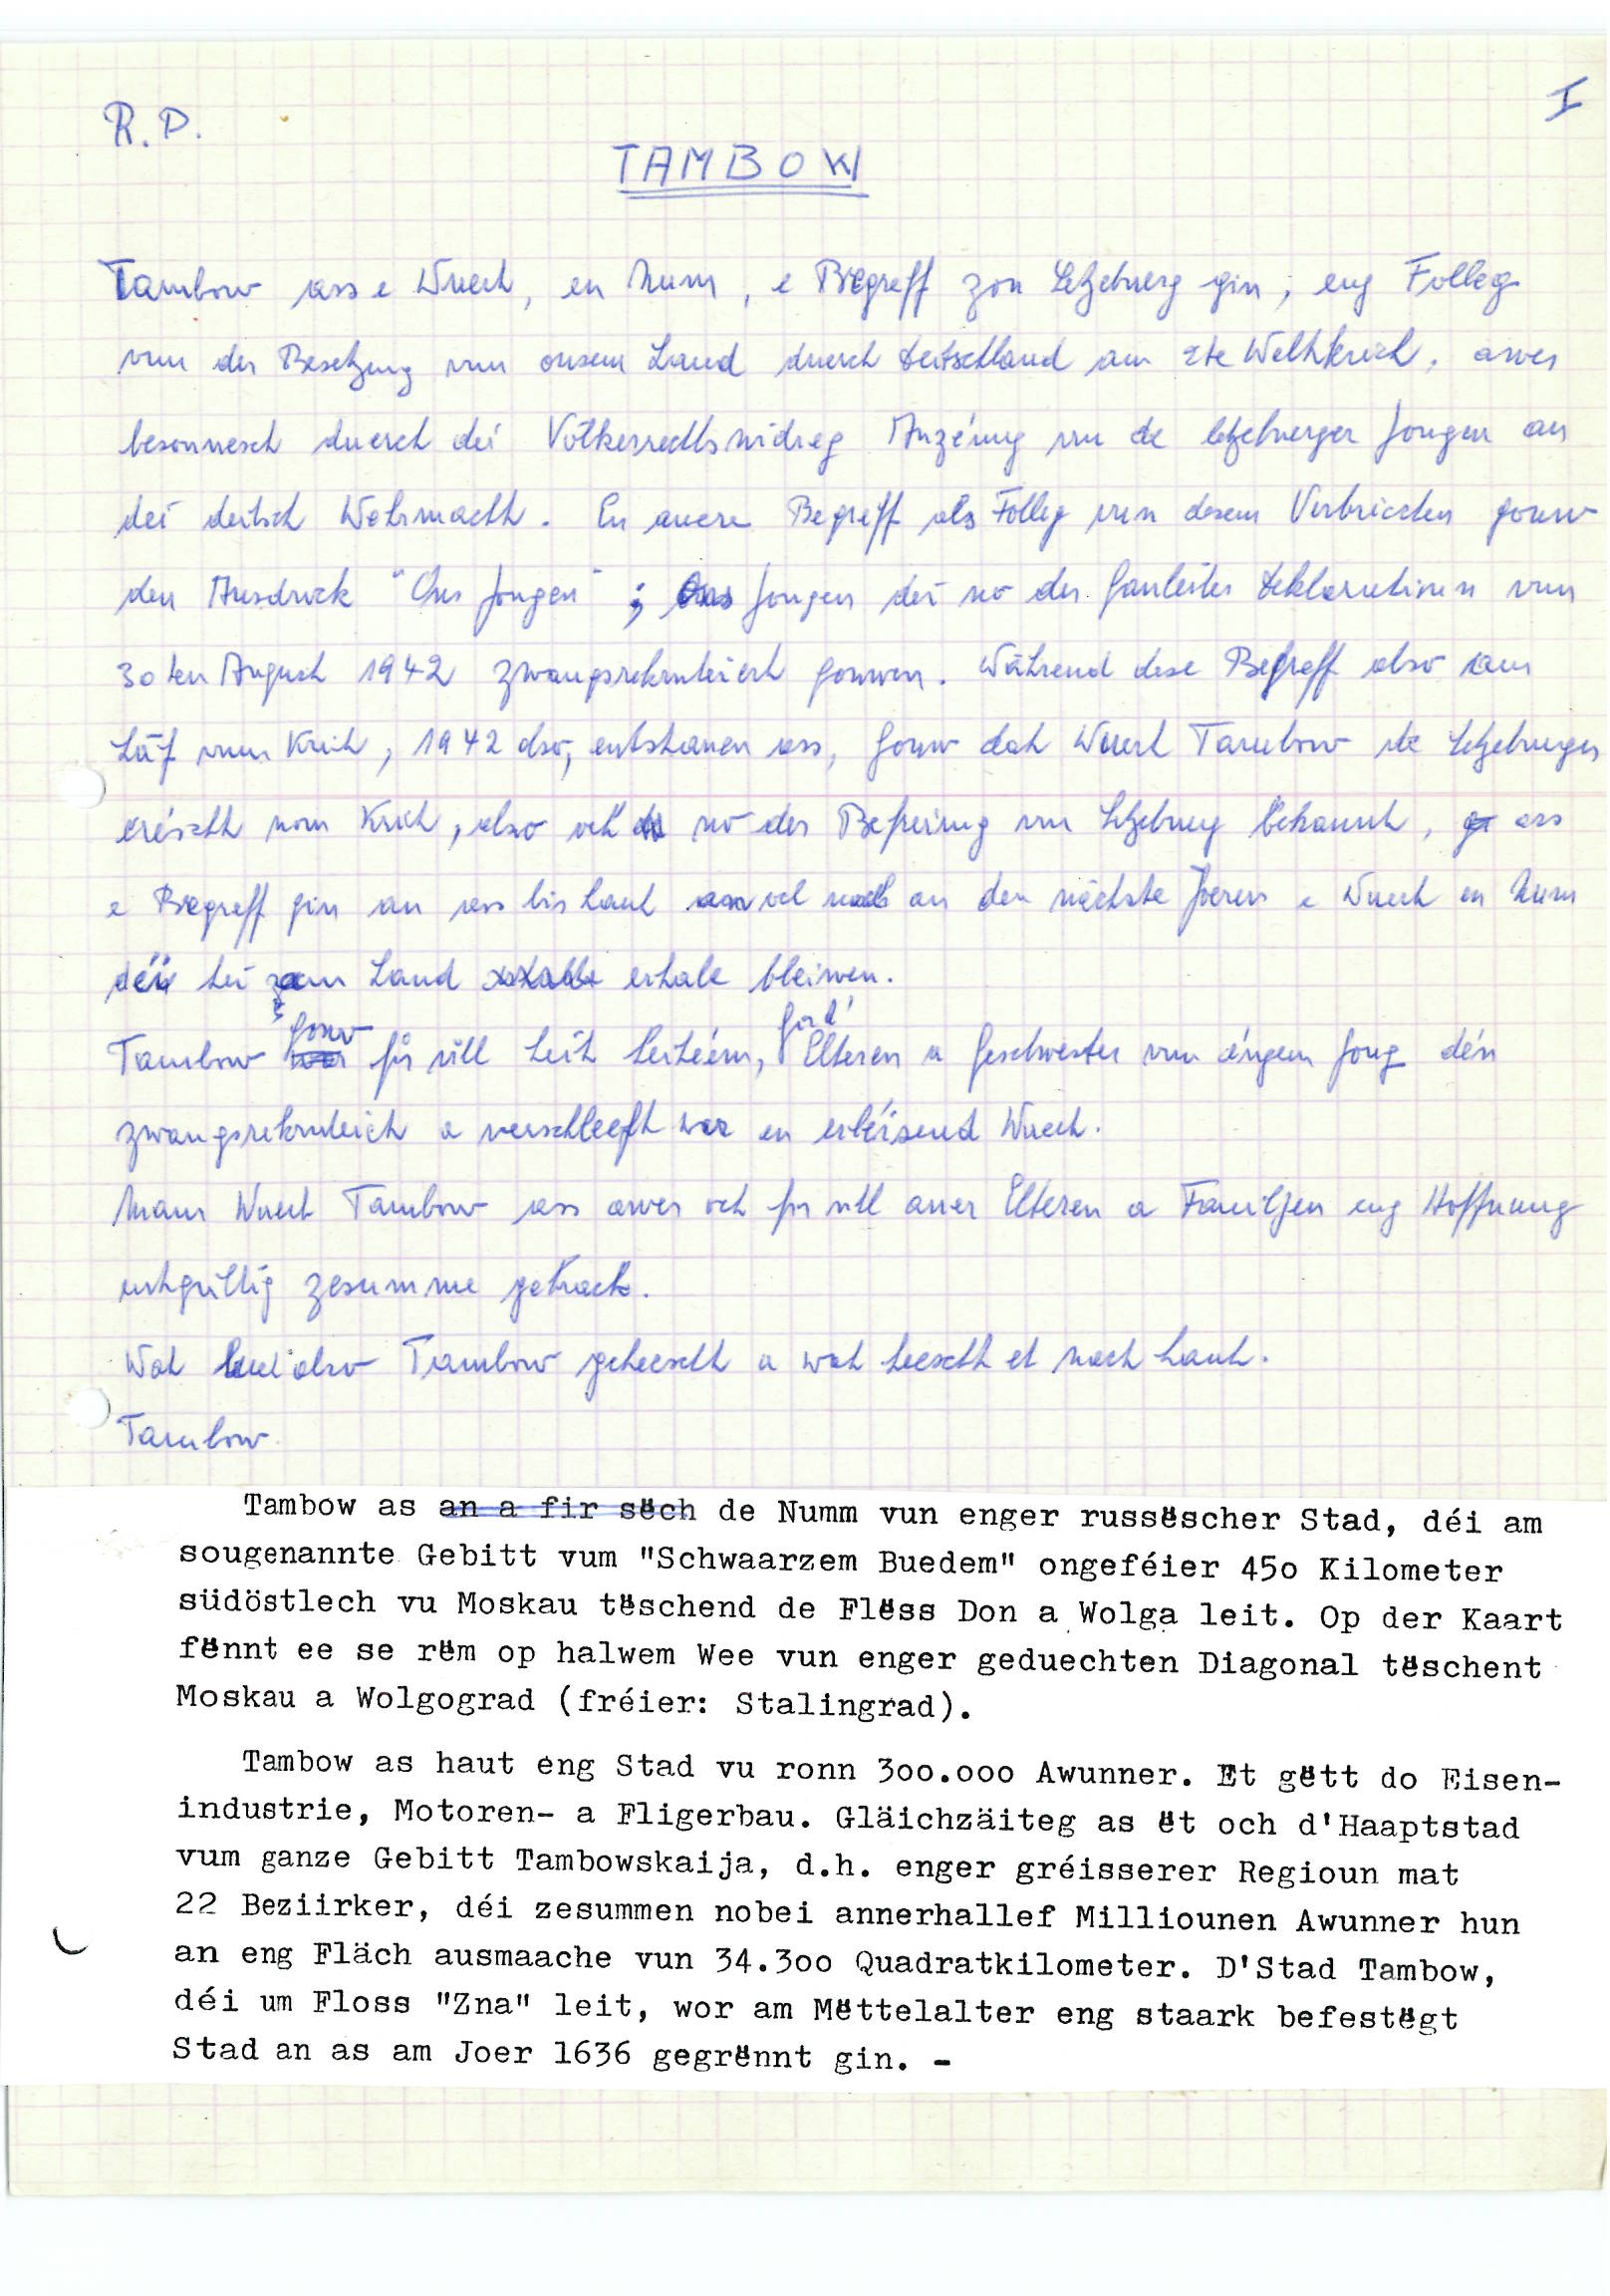 R.P.
I
TAMBOW
Tambow ass e Wuert, en Num, e Begreff zou Letzebuerg gin, eng Folleg
vun der Besetzung vun onsem Land duerch Deitschland am 2te Weltkrich, awer
besonnesch duerch déi Völkerrechtswidreg Anzéiung vun de letzeburger Jongen an
déi deitsch Wehrmacht. En anere Begreff als Folleg vun desem Verbriechen gouw
den Ausdrock "Ons Jongen"; Jongen déi no der Gauleiter Deklaratioun vum
30ten August 1942 zwangsrekrutéiert gouwen. Während dese Begreff also am
Läf vum Krich, 1942 also, entstanen ass, gouw dat Wuert Tambow de Letzeburger
eréischt nom Krich, also och no der Befreiung vun Letzeburg bekannt, ass
e Begreff gin an ass bis haut och an den nächste Joeren e Wuert en Num
déi hei am Land erhale bleiwen.
Tambow gouw fir vill Leit, fir d' Elteren a Geschwester vun éngem Jong dén
zwangsrekrutéiert a verschleeft war en erléisend Wuert.
Mam Wuert Tambow ass awer och fir vill aner Elteren a Familjen eng Hoffnung
entgülltig zesumme gekracht.
Wat huet also Tambow geheescht a wat heescht et nach haut.
Tambow
Tambow as an a fir sëch de Numm vun enger russëscher Stad, déi am
sougenannte Gebitt vum "Schwaarzem Buedem" ongeféier 45o Kilometer
südöstlech vu Moskau tëschend de Flëss Don a Wolga leit. Op der Kaart
fënnt ee se rëm op halwem Wee vun enger geduechten Diagonal tëschent
Moskau a Wolgograd (fréier: Stalingrad).
Tambow as haut eng Stad vu ronn 3oo.ooo Awunner. Et gëtt do Eisen-
industrie, Motoren- a Fligerbau. Gläichzäiteg as ët och d'Haaptstad
vum ganze Gebitt Tambowskaija, d.h. enger gréisserer Regioun mat
22 Beziirker, déi zesummen nobei annerhallef Milliounen Awunner hun
an eng Fläch ausmaache vun 34.3oo Quadratkilometer. D'Stad Tambow,
déi um Floss "Zna" leit, wor am Mëttelalter eng staark befestëgt
Stad an as am Joer 1636 gegrënnt gin. -